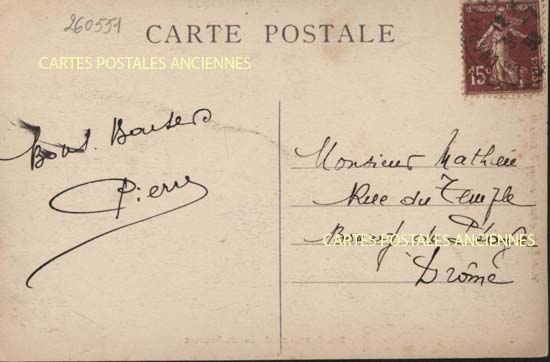 260551
CARTE POSTALE
CARTES POSTALES ANCIENNES
REPUBLIQUE FRANÇAISE
15c
POSTES
Bons Baisers
Pierre
Monsieur Mathieu
Rue du Temple
Bourg de Péage
CARTES POSTALES ANCIENNES
Drôme